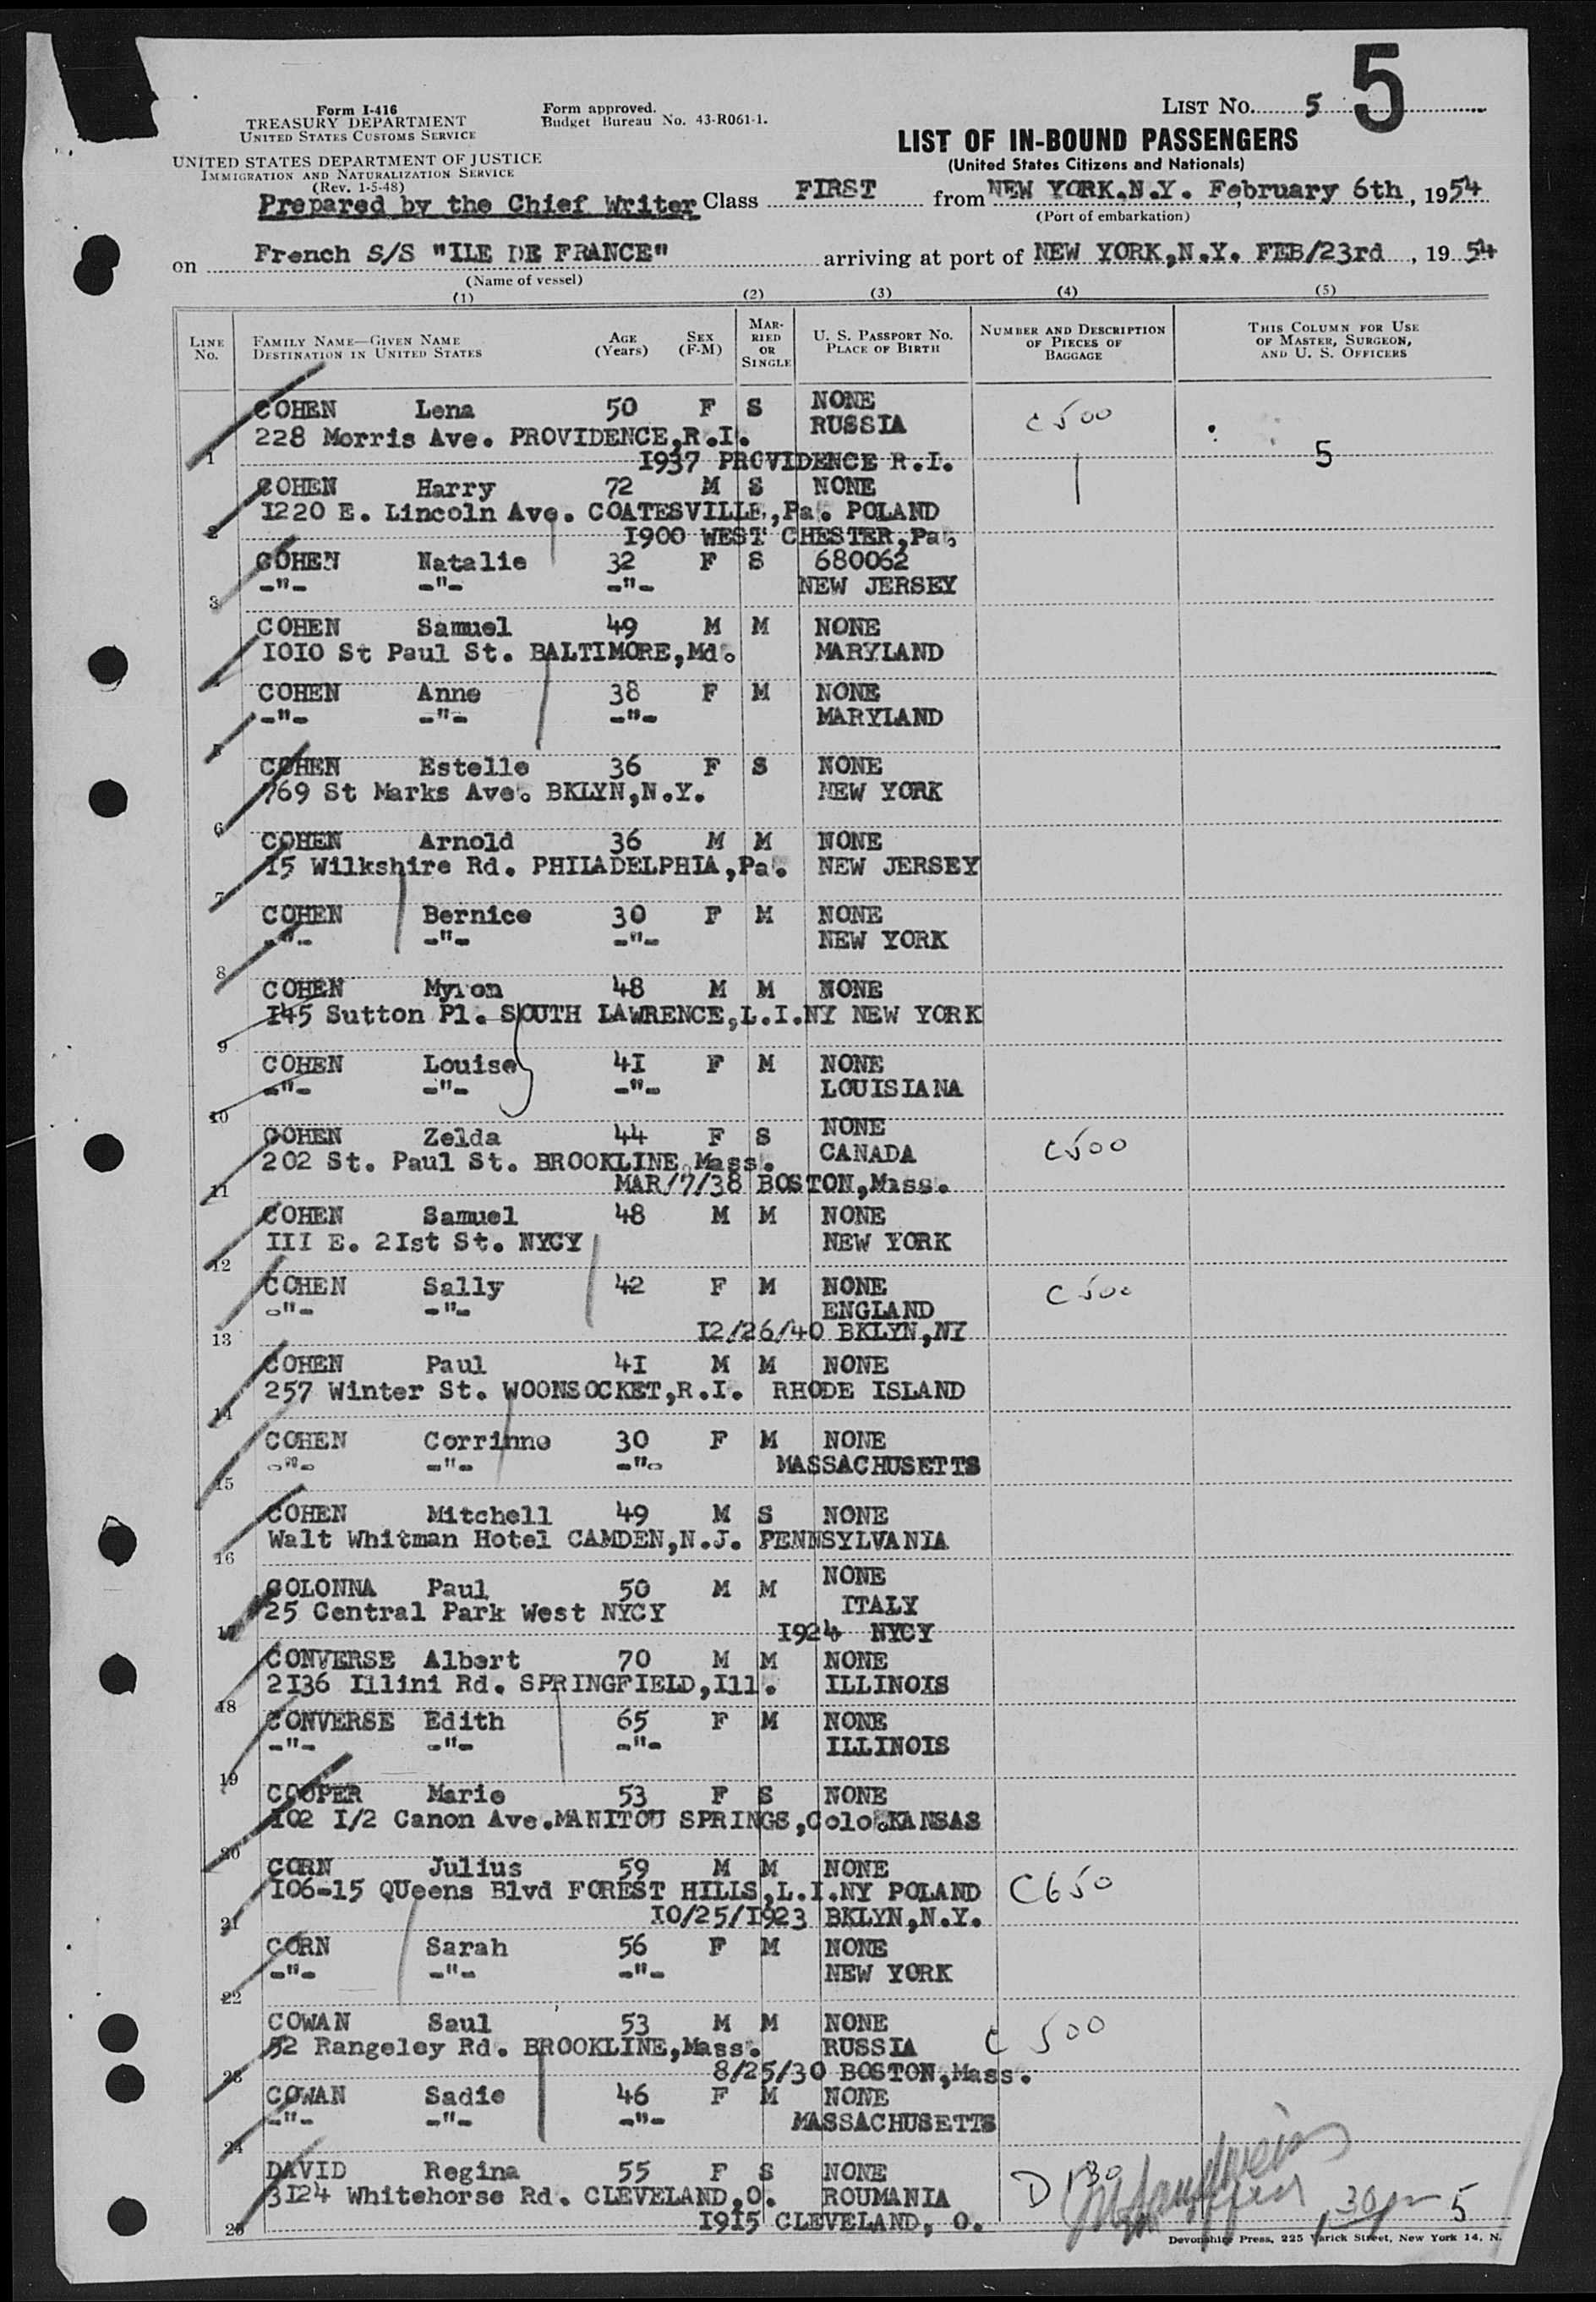 5
Form I-416
TREASURY DEPARTMENT
UNITED STATES CUSTOMS SERVICE
Form approved.
Budget Bureau No. 43-R061-1.
LIST No. 5
UNITED STATES DEPARTMENT OF JUSTICE
IMMIGRATION AND NATURALIZATION SERVICE
(Rev. 1-5-48)
LIST OF IN-BOUND PASSENGERS
(United States Citizens and Nationals)
Prepared by the Chief Writer Class FIRST from NEW YORK.N.Y. February 6th, 1954
(Port of embarkation)
on French S/S "ILE DE FRANCE" arriving at port of NEW YORK,N.Y. FEB/23rd, 1954
(Name of vessel)
(1) (2) (3) (4) (5)
LINE No. FAMILY NAME—GIVEN NAME DESTINATION IN UNITED STATES AGE (Years) SEX (F-M) MARRIED OR SINGLE U. S. PASSPORT No. PLACE OF BIRTH NUMBER AND DESCRIPTION OF PIECES OF BAGGAGE THIS COLUMN FOR USE OF MASTER, SURGEON, AND U. S. OFFICERS
COHEN Lena 50 F S NONE C500
228 Morris Ave. PROVIDENCE,R.I. RUSSIA
1 1937 PROVIDENCE R.I. 5
COHEN Harry 72 M S NONE
1220 E. Lincoln Ave. COATESVILLE,Pa. POLAND
2 1900 WEST CHESTER,Pa.
COHEN Natalie 32 F S 680062
-"- -"- -"- NEW JERSEY
3
COHEN Samuel 49 M M NONE
1010 St Paul St. BALTIMORE,Md. MARYLAND
COHEN Anne 38 F M NONE
-"- -"- -"- MARYLAND
5
COHEN Estelle 36 F S NONE
769 St Marks Ave. BKLYN,N.Y. NEW YORK
6
COHEN Arnold 36 M M NONE
15 Wilkshire Rd. PHILADELPHIA,Pa. NEW JERSEY
7
COHEN Bernice 30 F M NONE
-"- -"- -"- NEW YORK
8
COHEN Myron 48 M M NONE
145 Sutton Pl. SOUTH LAWRENCE,L.I.NY NEW YORK
9
COHEN Louise 41 F M NONE
-"- -"- -"- LOUISIANA
10
COHEN Zelda 44 F S NONE C500
202 St. Paul St. BROOKLINE,Mass. CANADA
11 MAR/7/38 BOSTON,Mass.
COHEN Samuel 48 M M NONE
III E. 2Ist St. NYCY NEW YORK
12
COHEN Sally 42 F M NONE C500
-"- -"- ENGLAND
13 12/26/40 BKLYN,NY
COHEN Paul 41 M M NONE
257 Winter St. WOONSOCKET,R.I. RHODE ISLAND
14
COHEN Corrinne 30 F M NONE
-"- -"- -"- MASSACHUSETTS
15
COHEN Mitchell 49 M S NONE
Walt Whitman Hotel CAMDEN,N.J. PENNSYLVANIA
16
COLONNA Paul 50 M M NONE
25 Central Park West NYCY ITALY
17 1924 NYCY
CONVERSE Albert 70 M M NONE
2136 Illini Rd. SPRINGFIELD,Ill. ILLINOIS
18
CONVERSE Edith 65 F M NONE
-"- -"- -"- ILLINOIS
19
COOPER Marie 53 F S NONE
102 I/2 Canon Ave.MANITOU SPRINGS,Colo.KANSAS
20
CORN Julius 59 M M NONE
106-15 QUeens Blvd FOREST HILLS,L.I.NY POLAND C650
21 10/25/1923 BKLYN,N.Y.
CORN Sarah 56 F M NONE
-"- -"- -"- NEW YORK
22
COWAN Saul 53 M M NONE C 500
52 Rangeley Rd. BROOKLINE,Mass. RUSSIA
23 8/25/30 BOSTON,Mass.
COWAN Sadie 46 F M NONE
-"- -"- -"- MASSACHUSETTS
24
DAVID Regina 55 F S NONE D130
3124 Whitehorse Rd. CLEVELAND,O. ROUMANIA
25 1915 CLEVELAND, O. 5
Devonshire Press, 225 Varick Street, New York 14, N.